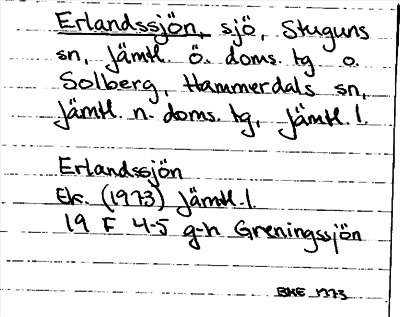 Erlandssjön, sjö, Stuguns
sn, Jämtl. ö. doms. tg o.
Solberg, Hammerdals sn,
Jämtl. n. doms. tg, Jämtl. l.
Erlandssjön
Ek. (1973) Jämtl. l.
19 F 4-5 g-h Greningssjön
BKE 1973